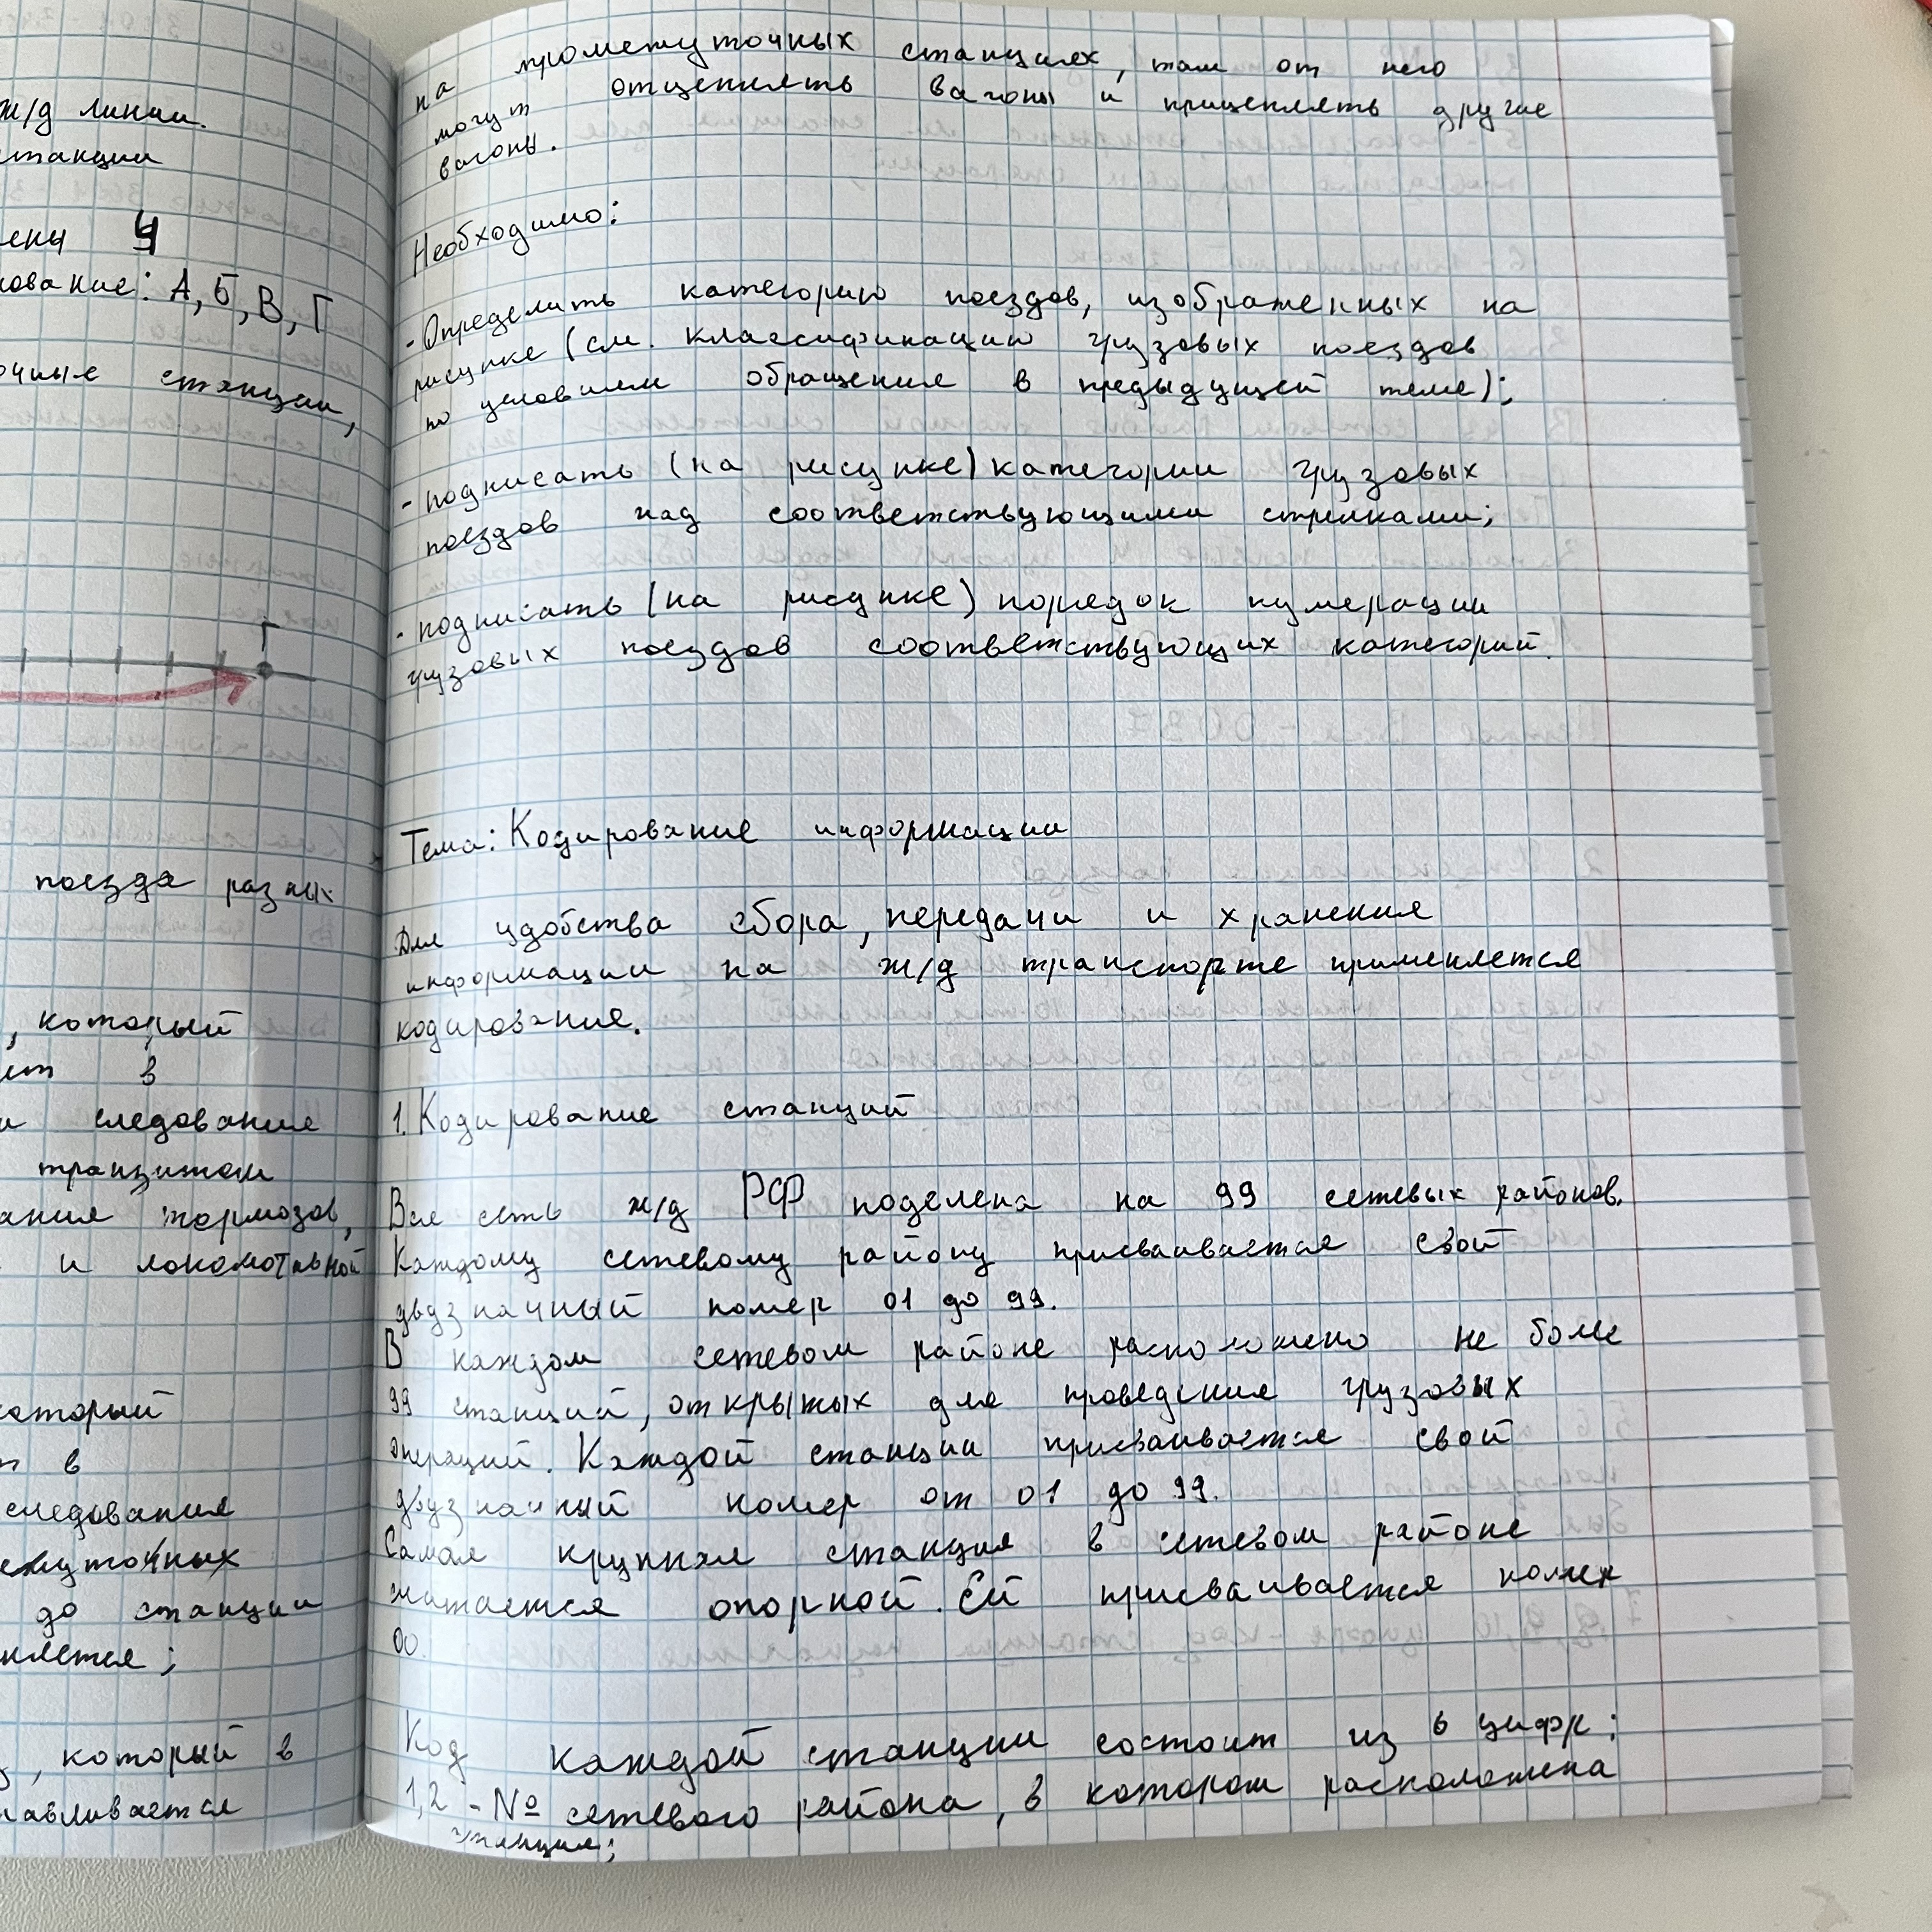 ж/д линии.
станции
4
ование: А, Б, В, Г
очные станции,
Г
поезда разных
, который
в
следование
транзитом
ания тормозов,
и локомотивной
который
в
следования
до станции
;
, который в
навливается
на промежуточных станциях, там от него
могут отцеплять вагоны и прицеплять другие
вагоны.
Необходимо:
- Определить категорию поездов, изображенных на
рисунке (см. классификацию грузовых поездов
по условиям обращения в предыдущей теме);
- подписать (на рисунке) категории грузовых
поездов над соответствующими стрелками;
- подписать (на рисунке) порядок нумерации
грузовых поездов соответствующих категорий.
Тема: Кодирование информации
Для удобства сбора, передачи и хранения
информации на ж/д транспорте применяется
кодирование.
1. Кодирование станций
Вся сеть ж/д РФ поделена на 99 сетевых районов.
Каждому сетевому району присваивается свой
двузначный номер 01 до 99.
В каждом сетевом районе расположено не более
99 станций, открытых для проведения грузовых
операций. Каждой станции присваивается свой
двузначный номер от 01 до 99.
Самая крупная станция в сетевом районе
считается опорной. Ей присваивается номер
00.
Код каждой станции состоит из 6 цифр:
1,2 - № сетевого района, в котором расположена
станция;